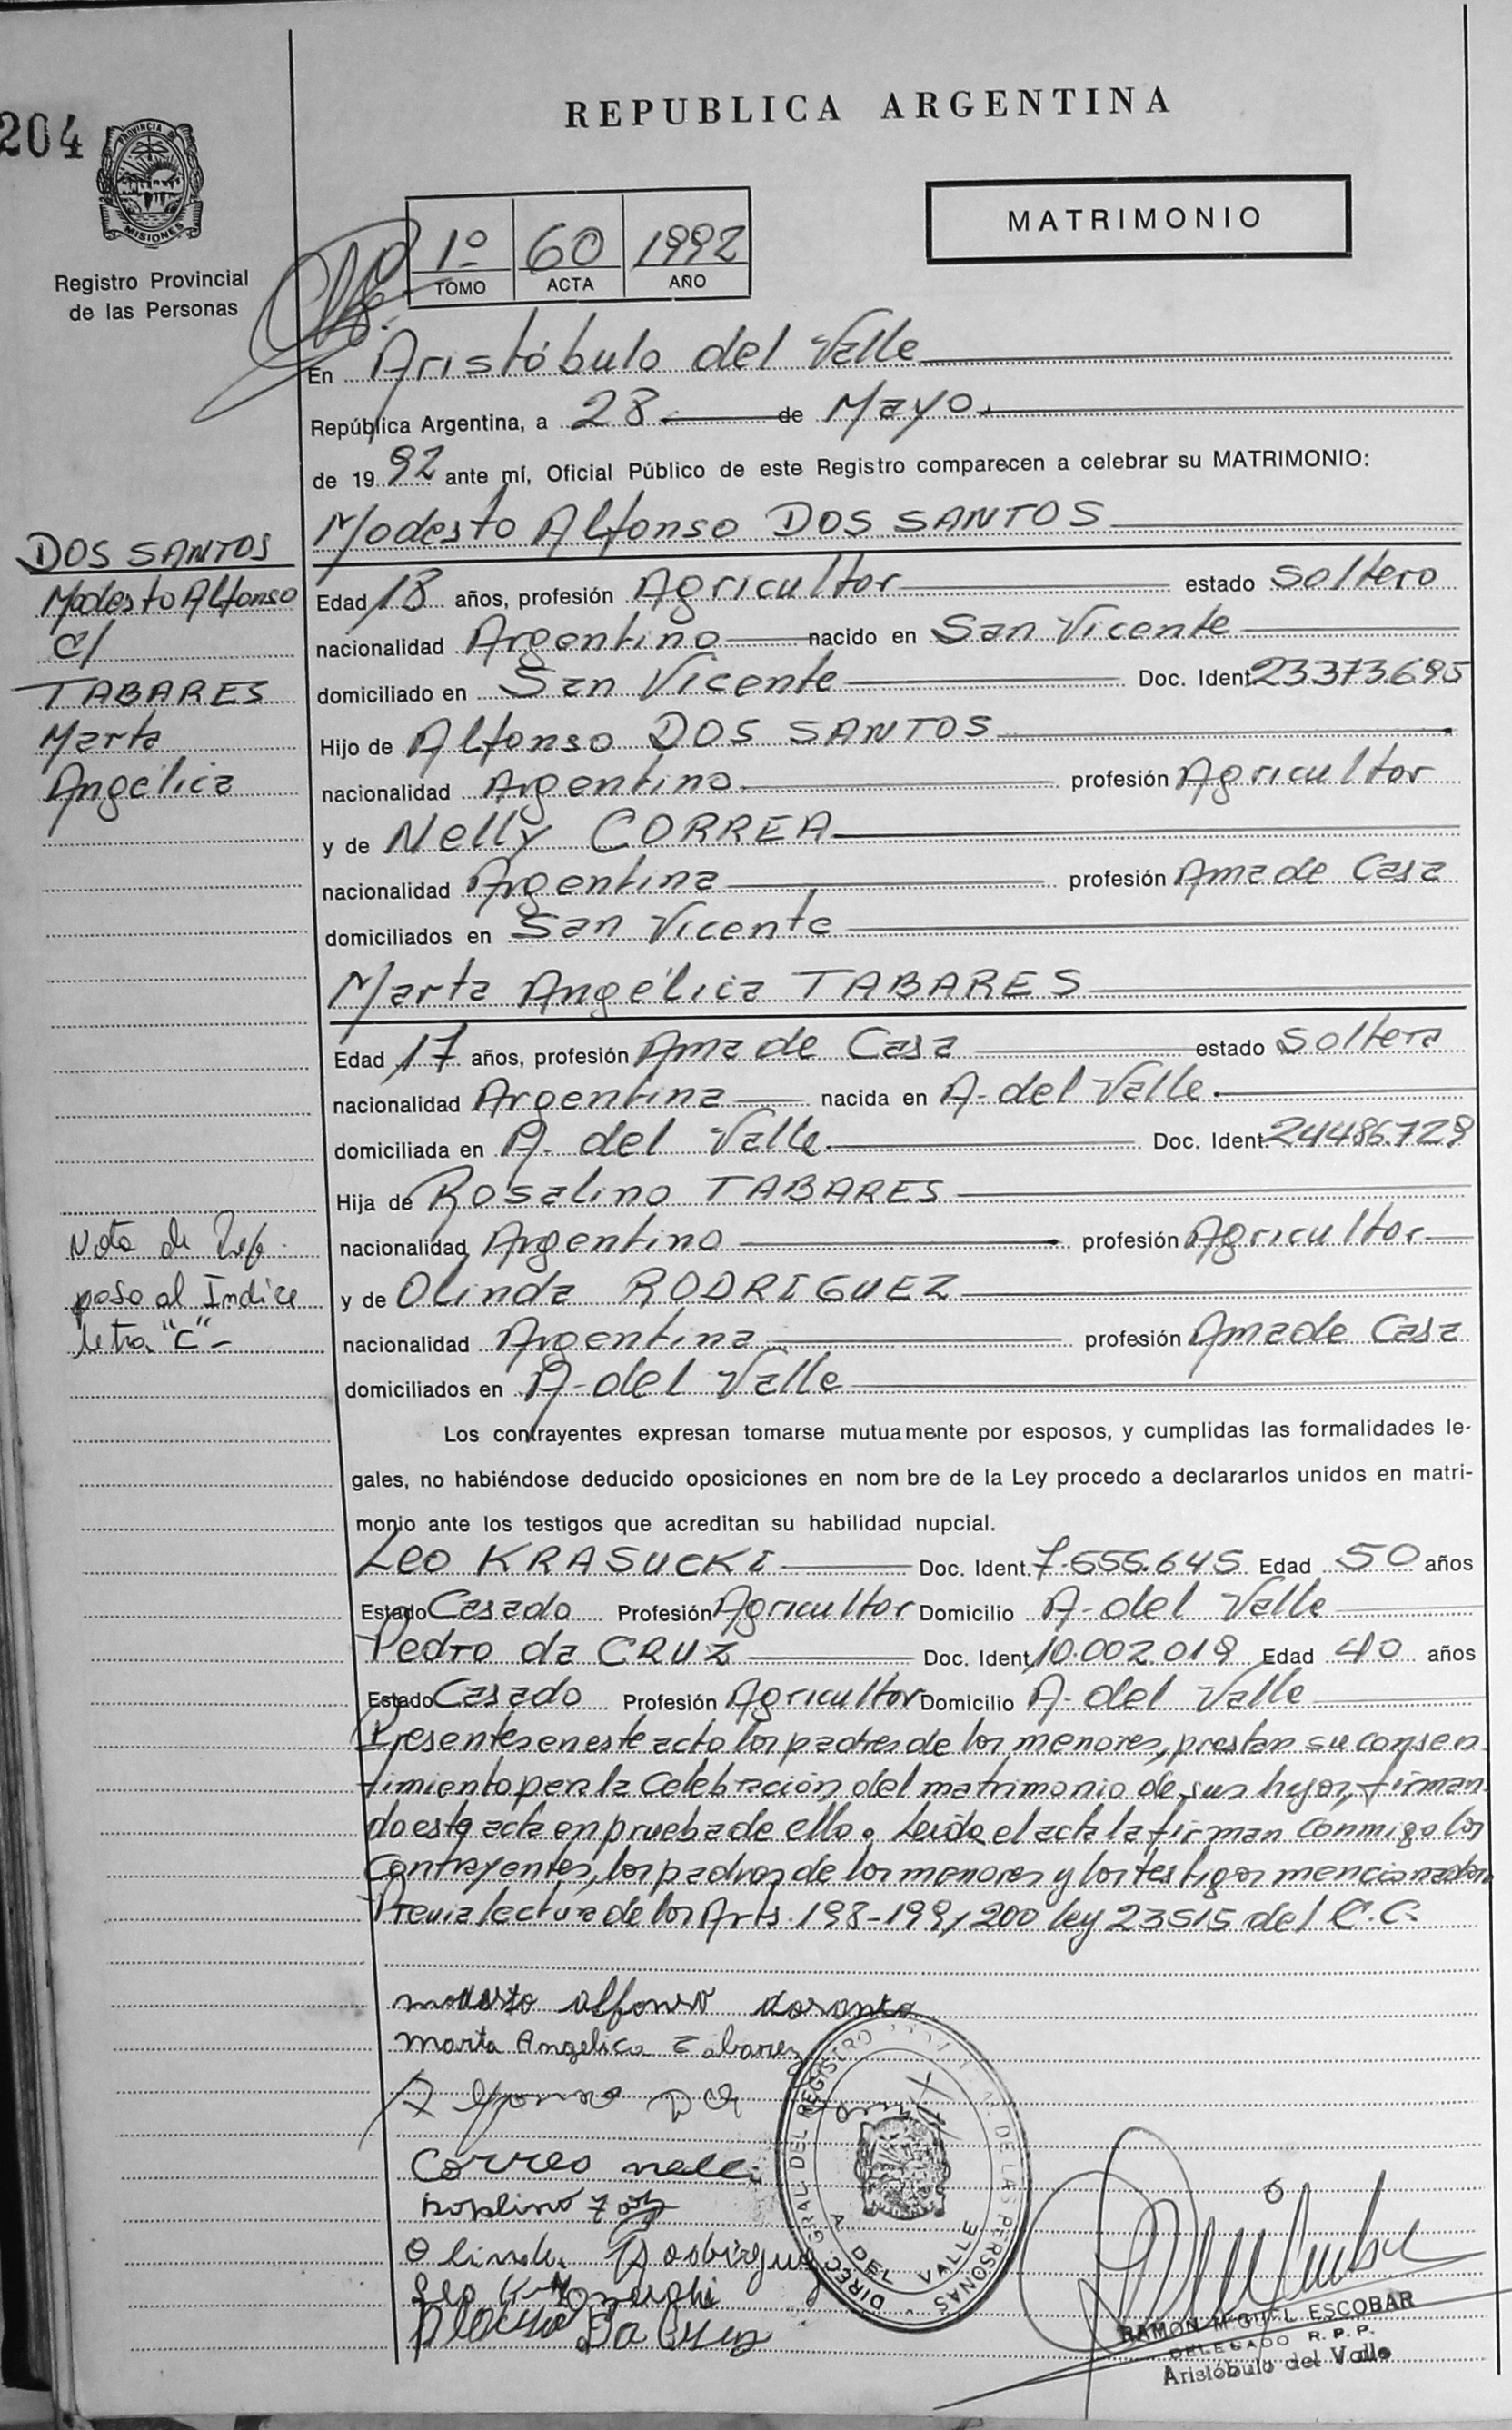 REPUBLICA ARGENTINA
204
PROVINCIA DE
MISIONES
Registro Provincial
de las Personas
MATRIMONIO
1º 60 1992
TOMO ACTA AÑO
En Aristóbulo del Valle
República Argentina, a 28 de Mayo
de 1992 ante mí, Oficial Público de este Registro comparecen a celebrar su MATRIMONIO:
Modesto Alfonso DOS SANTOS
DOS SANTOS
Modesto Alfonso
c/
TABARES
Marta
Angélica
Edad 18 años, profesión Agricultor estado Soltero
nacionalidad Argentino nacido en San Vicente
domiciliado en San Vicente Doc. Ident. 23373.695
Hijo de Alfonso DOS SANTOS
nacionalidad Argentino profesión Agricultor
y de Nelly CORREA
nacionalidad Argentina profesión Ama de Casa
domiciliados en San Vicente
Marta Angélica TABARES
Edad 17 años, profesión Ama de Casa estado Soltera
nacionalidad Argentina nacida en A. del Valle
domiciliada en A. del Valle Doc. Ident. 24486.729
Hija de Rosalino TABARES
nacionalidad Argentino profesión Agricultor
y de Olinda RODRIGUEZ
nacionalidad Argentina profesión Ama de Casa
domiciliados en A. del Valle
Nota de
paso al Indice
letra "C"-
Los contrayentes expresan tomarse mutuamente por esposos, y cumplidas las formalidades le-
gales, no habiéndose deducido oposiciones en nom bre de la Ley procedo a declararlos unidos en matri-
monio ante los testigos que acreditan su habilidad nupcial.
Leo KRASUCKI Doc. Ident. 7.555.645 Edad 50 años
Estado Casado Profesión Agricultor Domicilio A. del Valle
Pedro da CRUZ Doc. Ident. 10.002.019 Edad 40 años
Estado Casado Profesión Agricultor Domicilio A. del Valle
Presentes en este acto los padres de los menores, prestan su consen
timiento para la celebración del matrimonio de sus hijos, firman
do esta acta en prueba de ello. Leida el acta la firman conmigo los
contrayentes, los padres de los menores y los testigos mencionados
Previa lectura de los Arts. 198-199 y 200 ley 23515 del C.C.
modesto alfonso dosanto
marta Angelica Tabarez
Correo nelli
Olinda Rodriguez
Da Cruz
DIREC. GRAL. DEL REGISTRO DE LAS PERSONAS
A. DEL VALLE
RAMON MIGUEL ESCOBAR
DELEGADO R.P.P.
Aristóbulo del Valle